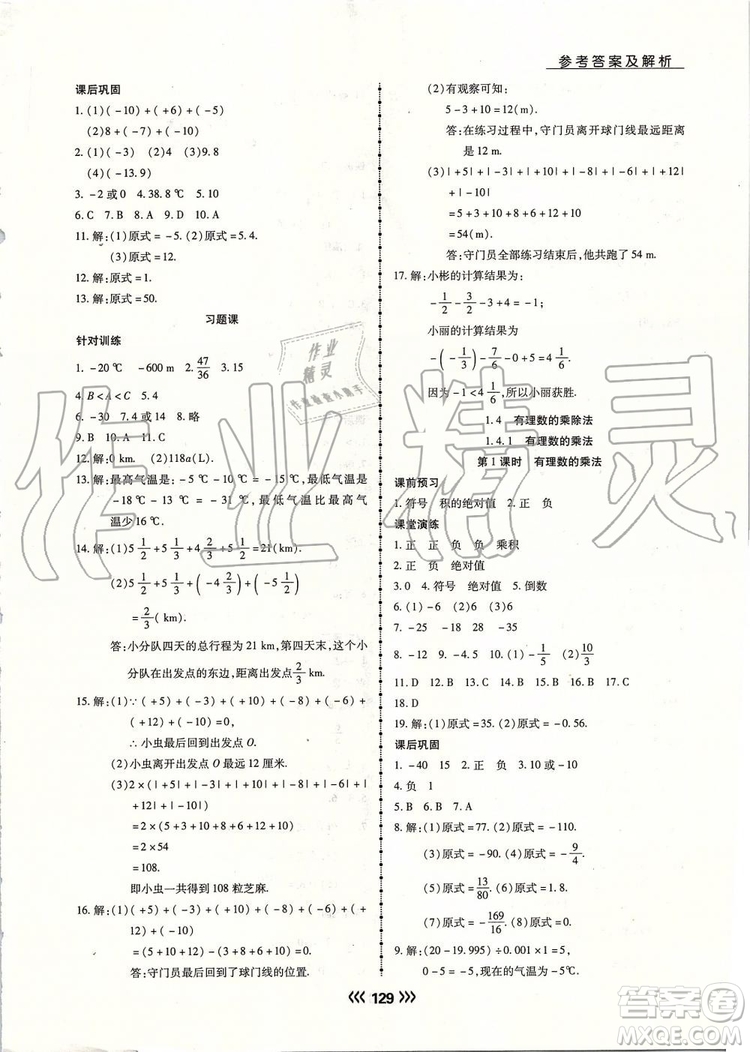 参考答案及解析
课后巩固
1. (1)(-10)+(+6)+(-5)
(2)8+(-7)+(-10)
2. (1)(-3) (2)4 (3)9.8
(4)(-13.9)
3. -2或0 4.38.8 ℃ 5.10
6.C 7.B 8.A 9.D 10.A
11.解:(1)原式=-5. (2)原式=5.4.
(3)原式=12.
12.解:原式=1.
13.解:原式=50.
习题课
针对训练
1. -20℃ -600 m 2. 47/36 3.15
4.B<A<C 5.4
6. -30 7.4或14 8.略
9.B 10.A 11.C
12.解:(1)0 km. (2)118a(L).
13.解:最高气温是-5-13=-18℃,最低气温是
-18-16=-34℃,最低气温比最高气
温少16℃.
14.解:(1)5 1/2+5 1/2+4 2/3+5 1/3=21(km).
(2)5 1/2+(-5 1/2)+(-4 2/3)+5 1/3
=2/3(km).
答:小分队四天的总行程为21 km,第四天末,这个小
分队在出发点的东边,距离出发点2/3 km.
15.解:(1)∵(+5)+(-3)+(+10)+(-8)+(-6)+
(+12)+(-10)=0,
∴小虫最后回到出发点O.
(2)小虫离开出发点O最远12厘米.
(3)2×(|+5|+|-3|+|+10|+|-8|+|-6|+|
+12|+|-10|)
=2×(5+3+10+8+6+12+10)
=2×54
=108.
即小虫一共得到108粒芝麻.
16.解:(1)(+5)+(-3)+(+10)+(-8)+(-6)+(+
12)+(-10)
=(5+10+12)-(3+8+6+10)
=0.
答:守门员最后回到了球门线的位置.
(2)有观察可知:
5-3+10=12(m).
答:在练习过程中,守门员离开球门线最远距离
是12 m.
(3)|+5|+|-3|+|+10|+|-8|+|-6|+|+12|
+|-10|
=5+3+10+8+6+12+10
=54(m).
答:守门员全部练习结束后,他共跑了54 m.
17.解:小彬的计算结果为:
-1/2-3/2-(-5)+(-4)=-1;
小丽的计算结果为:
-(-1/3)-(-7/6)-(-3)+0=4 1/6,
因为-1<4 1/6,所以小丽获胜.
1.4 有理数的乘除法
1.4.1 有理数的乘法
第1课时 有理数的乘法
课前预习
1.符号 积的绝对值 2.正 负
课堂演练
1.正 正 负 负 乘积
2.正 负 负
3.0 4.符号 绝对值 5.倒数
6.(1)-6 (2)6 (3)1 (4)0
7. -25 -28 -18 -25
8. -12 9. -4.5 10.(1)-1/5 (2)10/3
11.D 12.D 13.C 14.A 15.D 16.B 17.C
18.D
19.解:(1)原式=35. (2)原式=-0.56.
课后巩固
1. -40 15 2.正 负 3.10或-10
4.负 1
5.B 6.B 7.A
8.解:(1)原式=77. (2)原式=-110.
(3)原式=-90. (4)原式=-9/4.
(5)原式=13/80. (6)原式=1.8.
(7)原式=-169/16. (8)原式=0.
9.解:(20-19.995)÷0.001×1=5(℃),
0-5=-5,现在的气温为-5℃.
129
作业精灵
作业精灵
答案圈
MXQE.COM